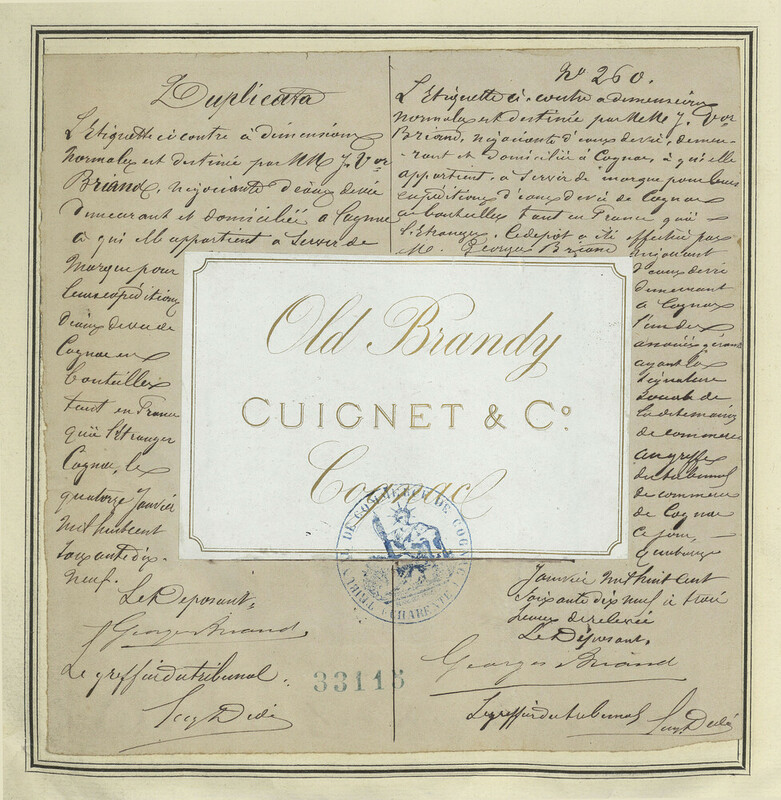 Duplicata
L'Etiquette ci contre à dimensions
normales est destinée par MM J. Vor
Briand, négociants d'eaux de vie
demeurant et domiciliés à Cognac
à qui elle appartient à servir de
marque pour
leurs expéditions
d'eaux de vie de
Cognac en
bouteilles
tant en France
qu'à l'étranger
Cognac, le
quatorze Janvier
mil huit cent
soixante dix-
neuf.
Le Déposant,
Georges Briand
Le greffier du tribunal.
No 260.
L'Etiquette ci-contre à dimensions
normales est destinée par MM J. Vor
Briand, négociants d'eaux de vie, demeu-
-rant et domiciliés à Cognac, à qui elle
appartient, à servir de marque pour leurs
expéditions d'eaux de vie de Cognac
en bouteilles tant en France qu'à
l'Etranger. Ce dépôt a été effectué par
M. Georges Briand négociant
d'eaux de vie
demeurant
à Cognac
l'un des
associés gérants
ayant la
signature
sociale de
la dite maison
de commerce
au greffe
du tribunal
de commerce
de Cognac
ce jour,
quatorze
Janvier mil huit cent
soixante dix neuf à trois
heures de relevée
Le Déposant,
Georges Briand
Le greffier du tribunal
Old Brandy
CUIGNET & Co.
Cognac
TRIBUNAL DE COMMERCE DE COGNAC
(CHARENTE)
33115